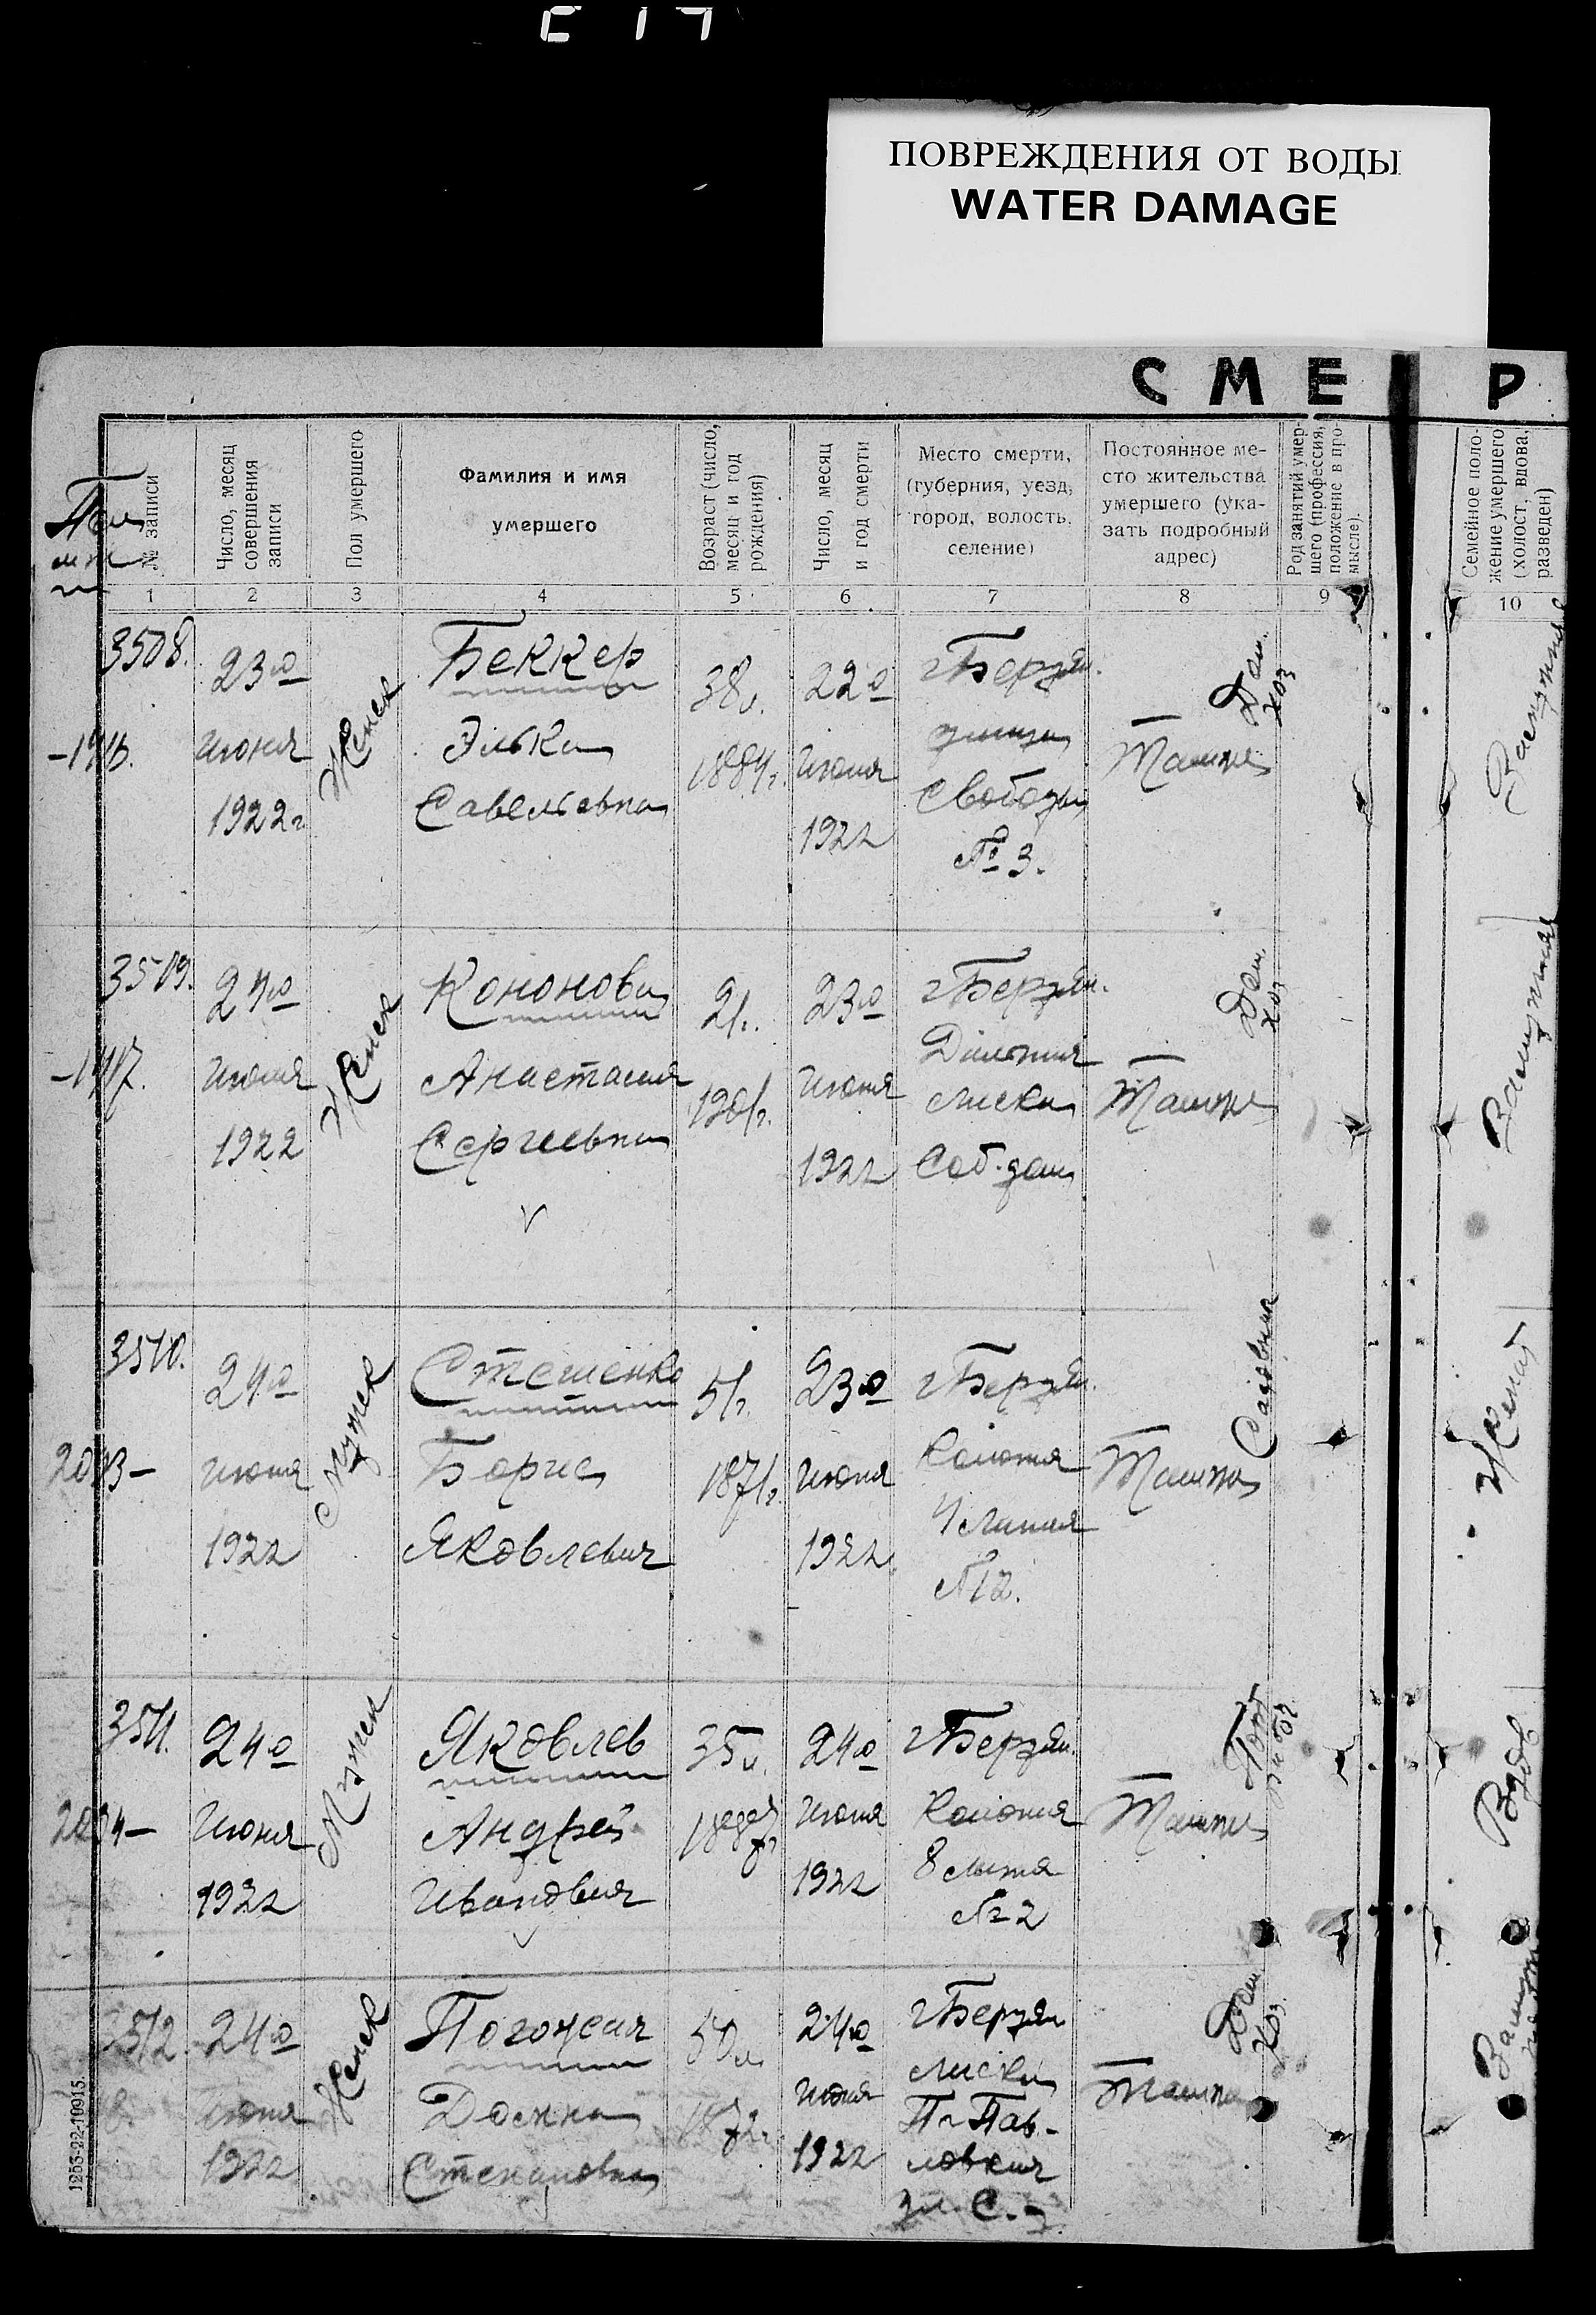 ПОВРЕЖДЕНИЯ ОТ ВОДЫ
WATER DAMAGE
С М Е Р
№ записи
Число, месяц
совершения
записи
Пол умершего
Фамилия и имя
умершего
Возраст (число,
месяц и год
рождения)
Число, месяц
и год смерти
Место смерти,
(губерния, уезд,
город, волость,
селение)
Постоянное ме-
сто жительства
умершего (ука-
зать подробный
адрес)
Род занятий умер-
шего (профессия,
положение в про-
мысле).
Семейное поло-
жение умершего
(холост, вдова,
разведен)
1 2 3 4 5 6 7 8 9 10
3508.
23го
июня
1922г
Женск
Беккер
Элька
Савельевна
38л.
1884г.
22го
июня
1922
г Бердян.
улица
Свободы
№ 3.
Дом.
хоз
Замужняя
3509.
24го
июня
1922
Женск
Кононова
Анастасия
Сергиевна
21г.
1901г.
23го
июня
1922
г Бердян.
Лиски
Соб. дом
Дом.
хоз
Замужняя
3510.
24го
июня
1922
Мужск
Стешенко
Борис
Яковлевич
51г.
1871г.
23го
июня
1922
г Бердян.
Колония
4 линия
№12.
Садовник
Женат
3511.
24го
Июня
1922
Мужск
Яковлев
Андрей
Иванович
35л.
1887г
24го
июня
1922
г Бердян.
Колония
8 линия
№ 2
Порт
рабоч
Вдов
3512
24го
июня
1922
Женск
Погожая
Домна
Степановна
50л.
1872г.
24го
июня
1922
г Бердян
Лиски
П-Пав-
ловская
Дом
Хоз.
1253-22-10915.